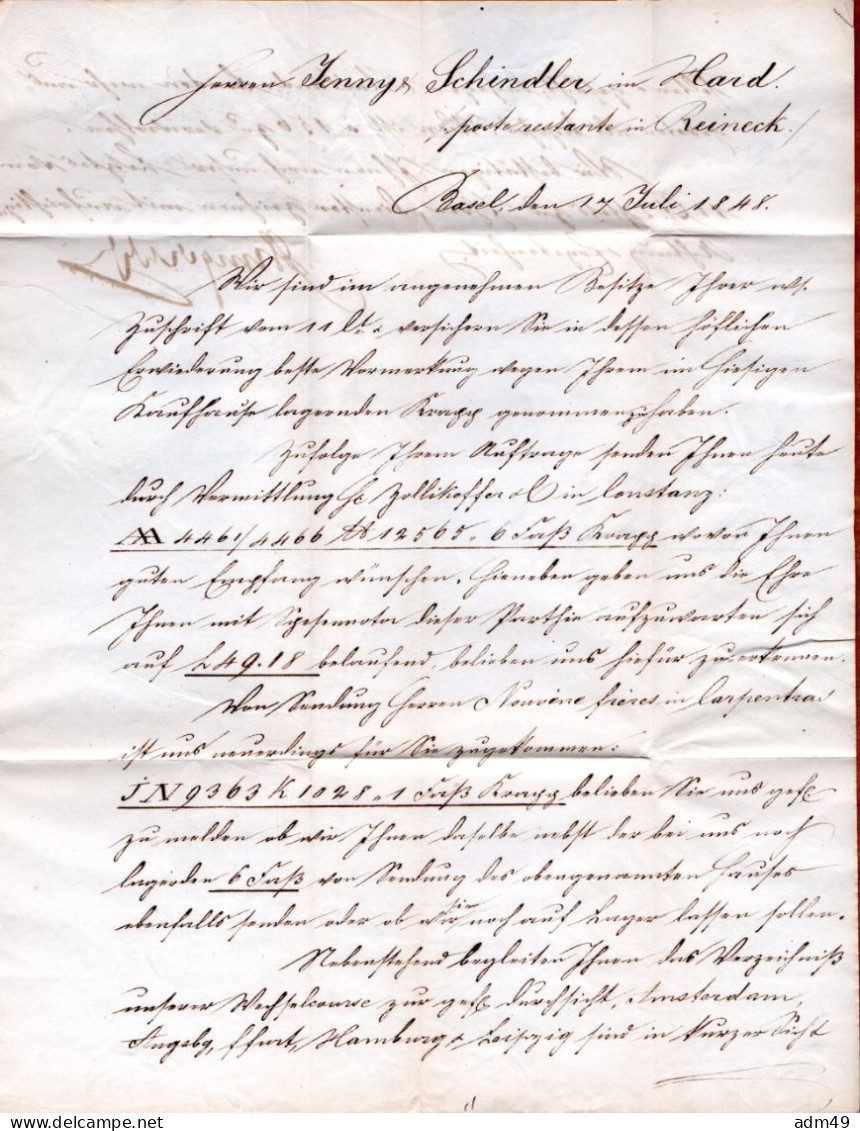 Herren Jenny & Schindler, im Hard.
poste restante in Reineck./
Basel, den 17 Juli 1848.
Wir sind im angenehmen Besitze Ihrer
Zuschrift vom 11 & versichern Sie in dessen höflichen
Erwiederung beste Vormerkung wegen Ihrem im hiesigen
Kaufhause lagernden Krapp genommen zu haben.
Zufolge Ihrem Auftrage senden Ihnen heute
durch Vermittlung H Zollikoffer & C in Constanz:
4461/4466 12565. 6 Faß Krapp wovon Ihnen
guten Empfang wünschen. Hieneben geben uns die Ehre
Ihnen mit Spesennota dieser Parthie aufzuwarten sich
auf L 49.18 belaufend, belieben uns hiefür zu erkennen.
Von Sendung Herren frères in Carpentras
ist uns neuerdings für Sie zugekommen:
JN 9363 K 1028. 1 Faß Krapp belieben Sie uns gefl
zu melden ob wir Ihnen dasselbe nebst der bei uns noch
6 Faß von Sendung des obengenannten Hauses
ebenfalls senden oder ob wir sie noch auf Lager lassen sollen.
Nebenstehend begleiten Ihnen das Verzeichniß
unserer Wechselcourse zur gefl Durchsicht, Amsterdam,
Augsbg, Ffurt, Hamburg & Leipzig sind in kurzer Sicht
adm49